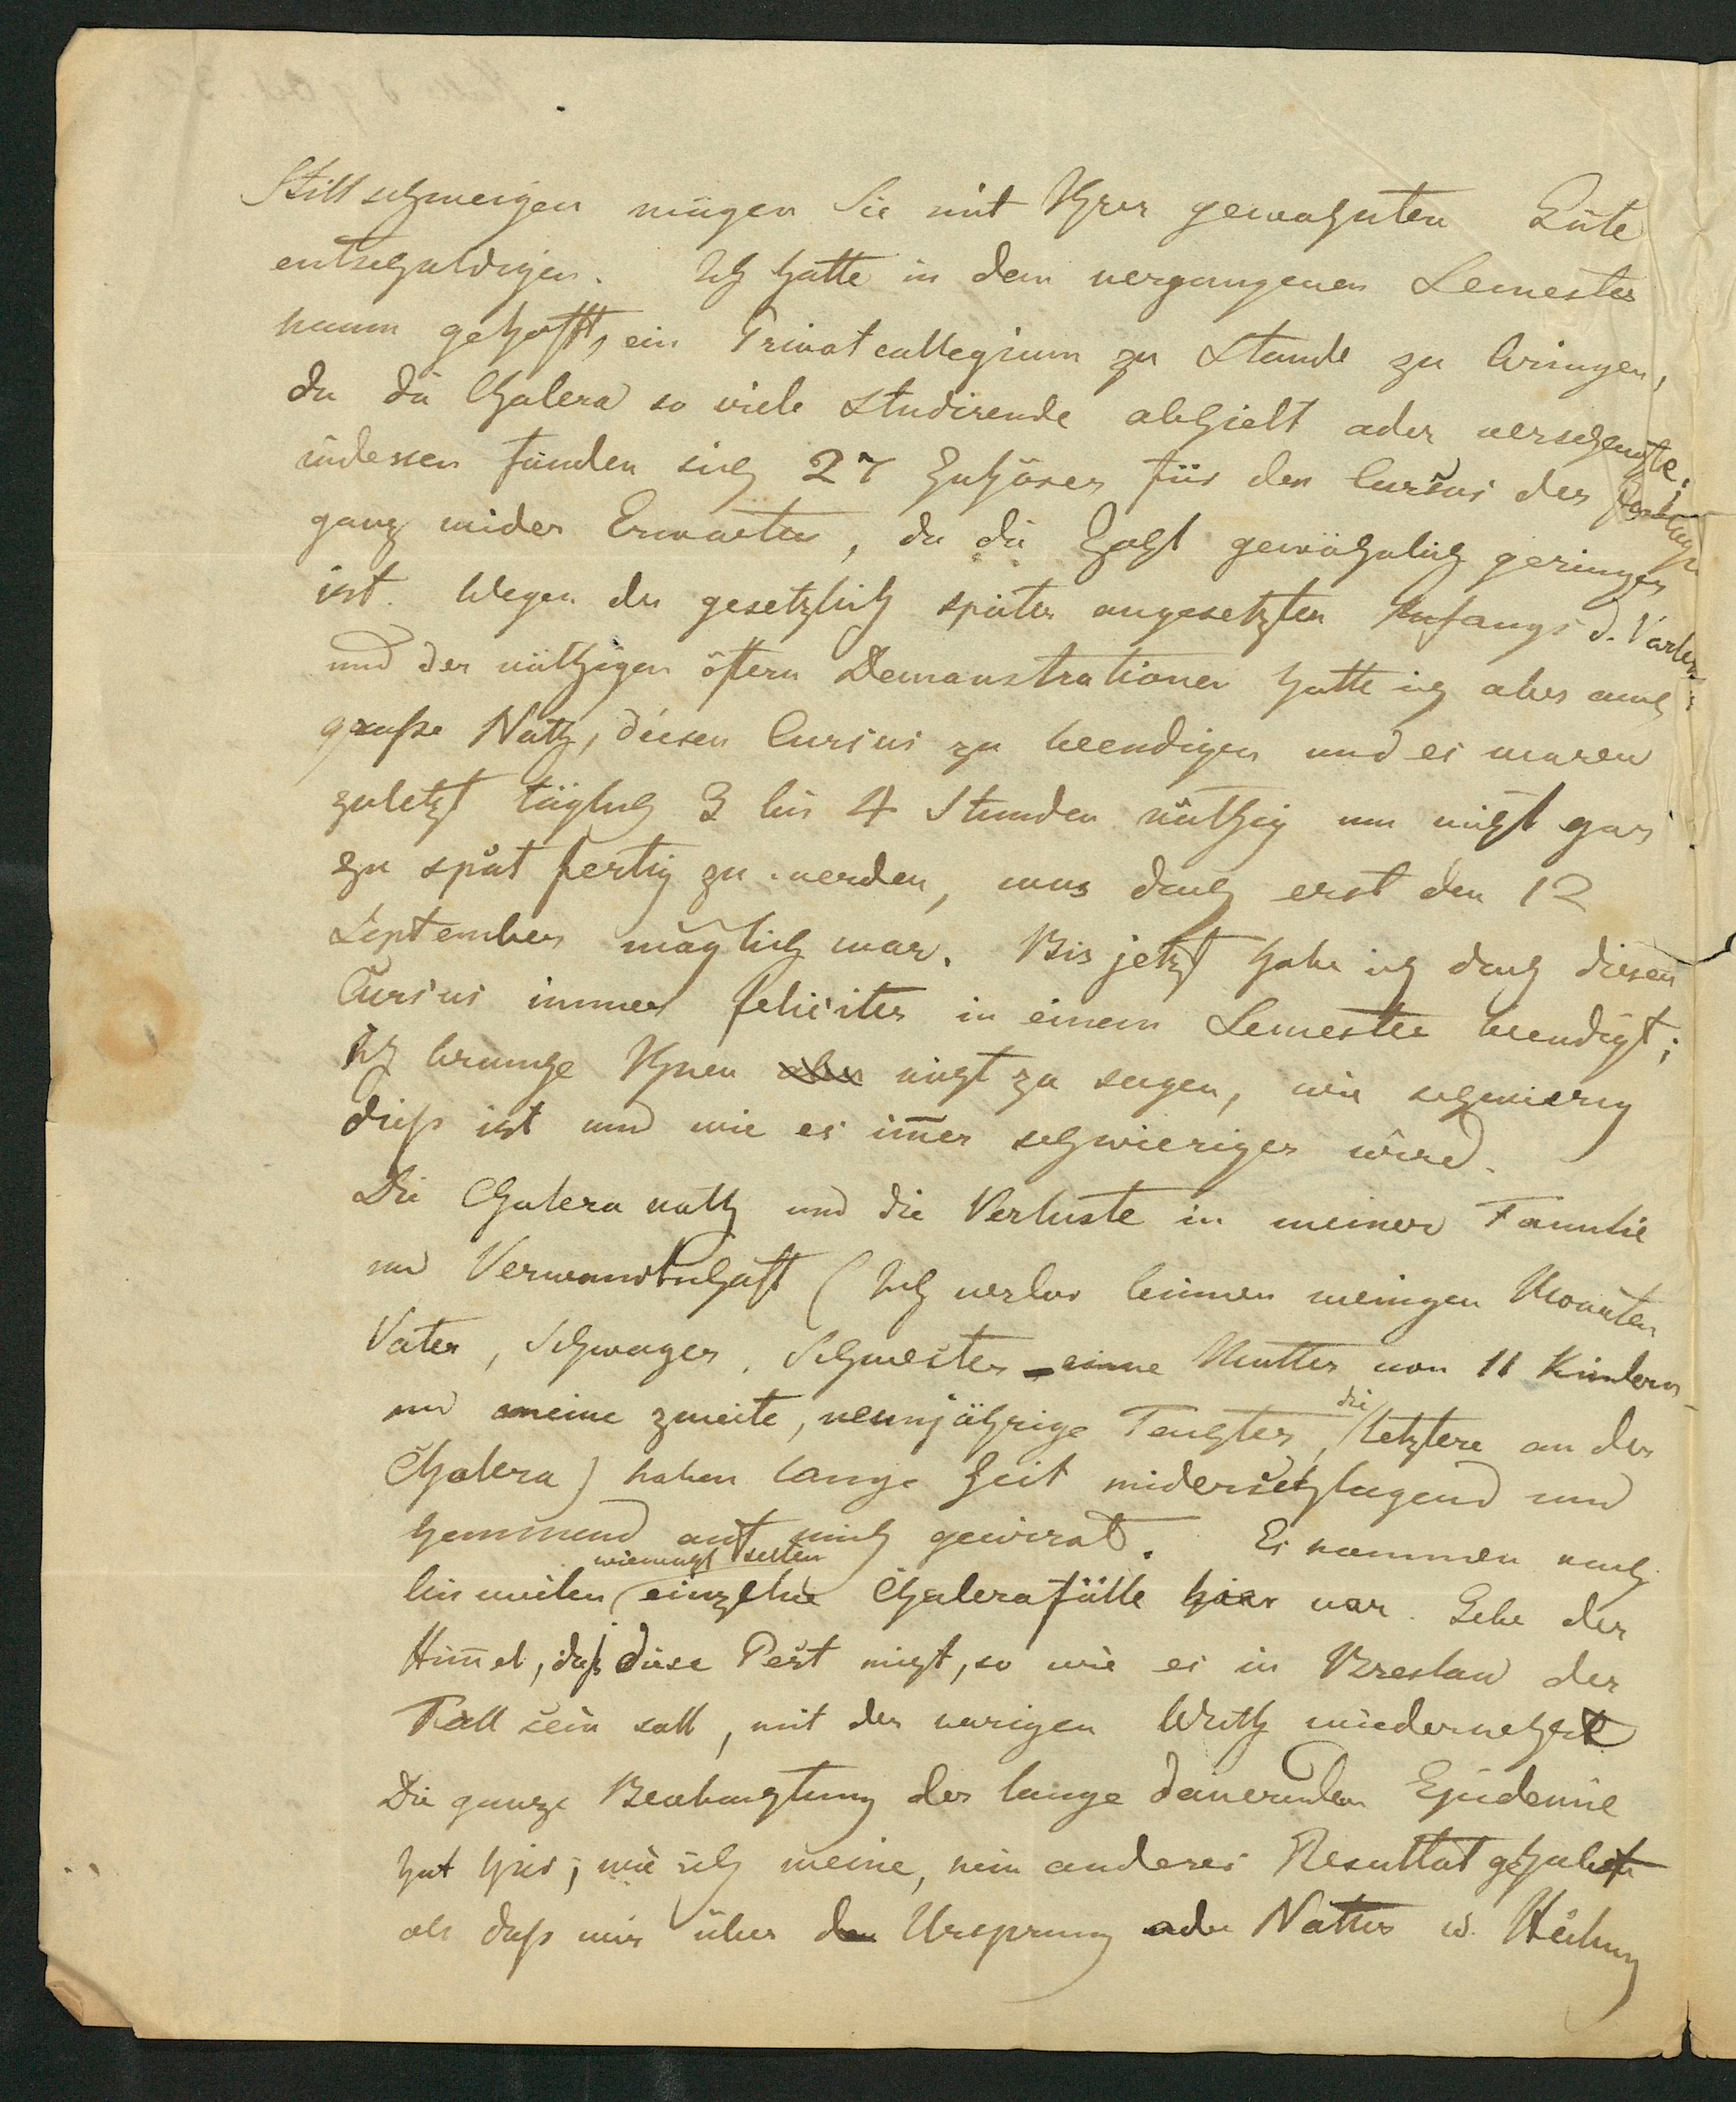 Stillschweigen mögen Sie mit Ihrer gewohnten Güte
entschuldigen. Ich hatte in dem vergangenen Semester
kaum gehofft, ein Privatcollegium zu Stande zu bringen,
da die Cholera so viele Studirende abhielt oder verscheuchte;
indessen fanden sich 27 Zuhörer für den Cursus der
ganz wider Erwarten, da die Zahl gewöhnlich geringer
ist. Wegen des gesetzlich später angesetzten Anfangs d. Vorles:
und der nöthigen öftern Demonstrationen hatte ich aber auch
große Noth, diesen Cursus zu beendigen und es waren
zuletzt täglich 3 bis 4 Stunden nöthig um nicht gar
zu spät fertig zu werden, was doch erst den 12
September möglich war. Bis jetzt habe ich doch diesen
Cursus immer feliciter in einem Semester beendigt;
ich brauche Ihnen aber nicht zu sagen, wie schwierig
dieß ist und wie es im̄er schwieriger wird.
Die Choleranoth und die Verluste in meiner Familie
und Verwandtschaft (Ich verlor binnen wenigen Monaten
Vater, Schwager, Schwester – eine Mutter von 11 Kindern –
und meine zweite, neunjährige Tochter, die letztere an der
Cholera) haben lange Zeit niederschlagend und
hemmend auf mich gewirkt. Es kommen noch
bisweilen wiewohl selten einzelne Cholerafälle hier vor. Gebe der
Him̄el, daß diese Pest nicht, so wie es in Breslau der
Fall sein soll, mit der vorigen Wuth wiederkehrt.
Die ganze Beobachtung der lange dauernden Epidemie
hat hier, wie ich meine, kein anderes Resultat gehabt
als daß wir über den Ursprung oder Natur u. Heilung